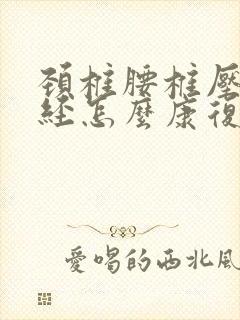 頚椎腰椎壓
経怎麼康復
愛唱的西北風